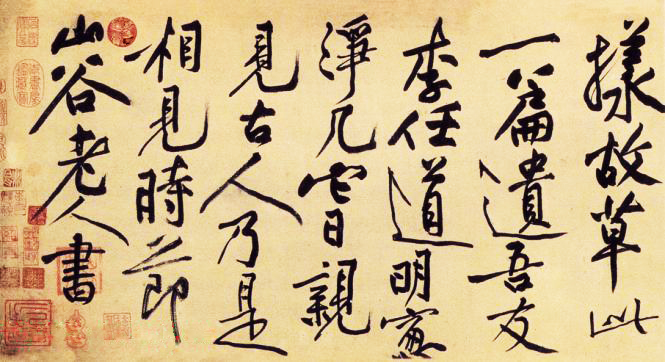 樣故草此
一篇遺吾友
李任道明窗
淨几它日親
見古人乃是
相見時節
山谷老人書